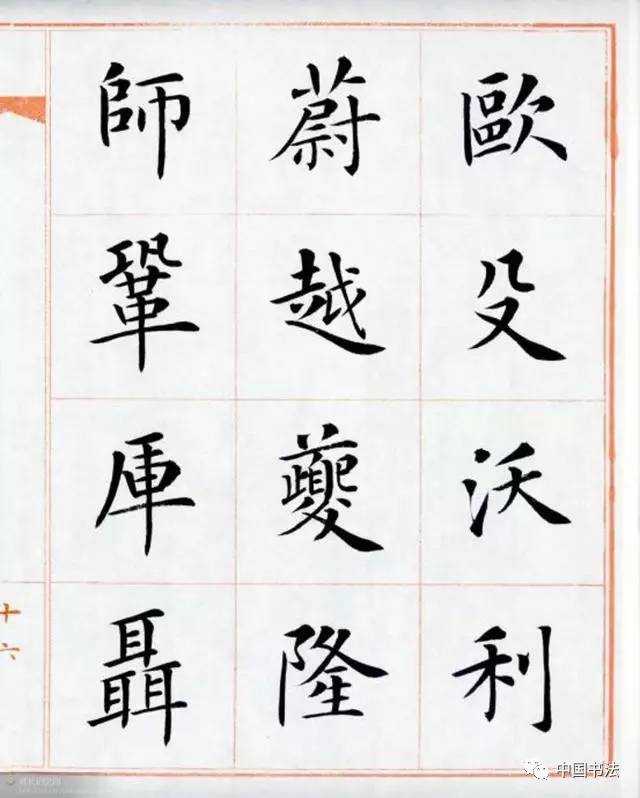 歐殳沃利
蔚越夔隆
師鞏厙聶
十六
中国书法